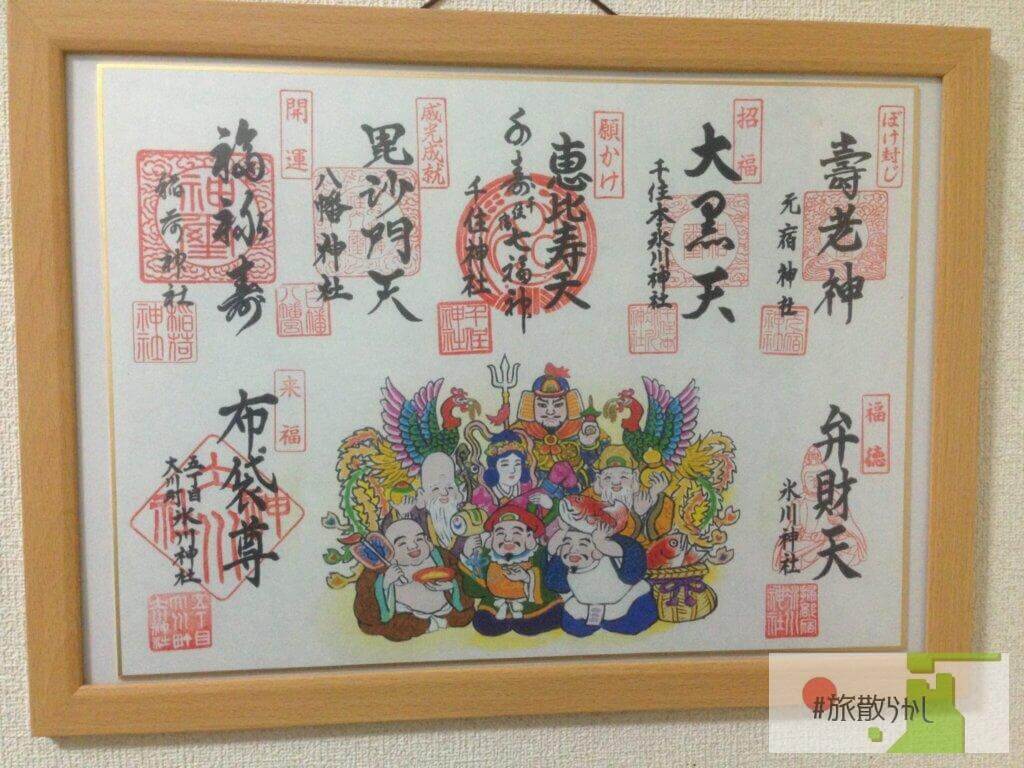 ぼけ封じ
壽老神
元宿神社
招福
大黒天
千住本氷川神社
願かけ
恵比寿天
千寿七福神
千住神社
威光成就
毘沙門天
八幡神社
開運
福禄寿
稲荷神社
稲荷神社
千住神社
八幡宮
福徳
弁財天
氷川神社
来福
布袋尊
五丁目
大川町氷川神社
#旅散らかし